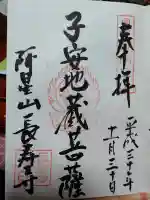 奉拝
平成二十三年
十一月三十日
子安地蔵菩薩
阿星山長寿寺